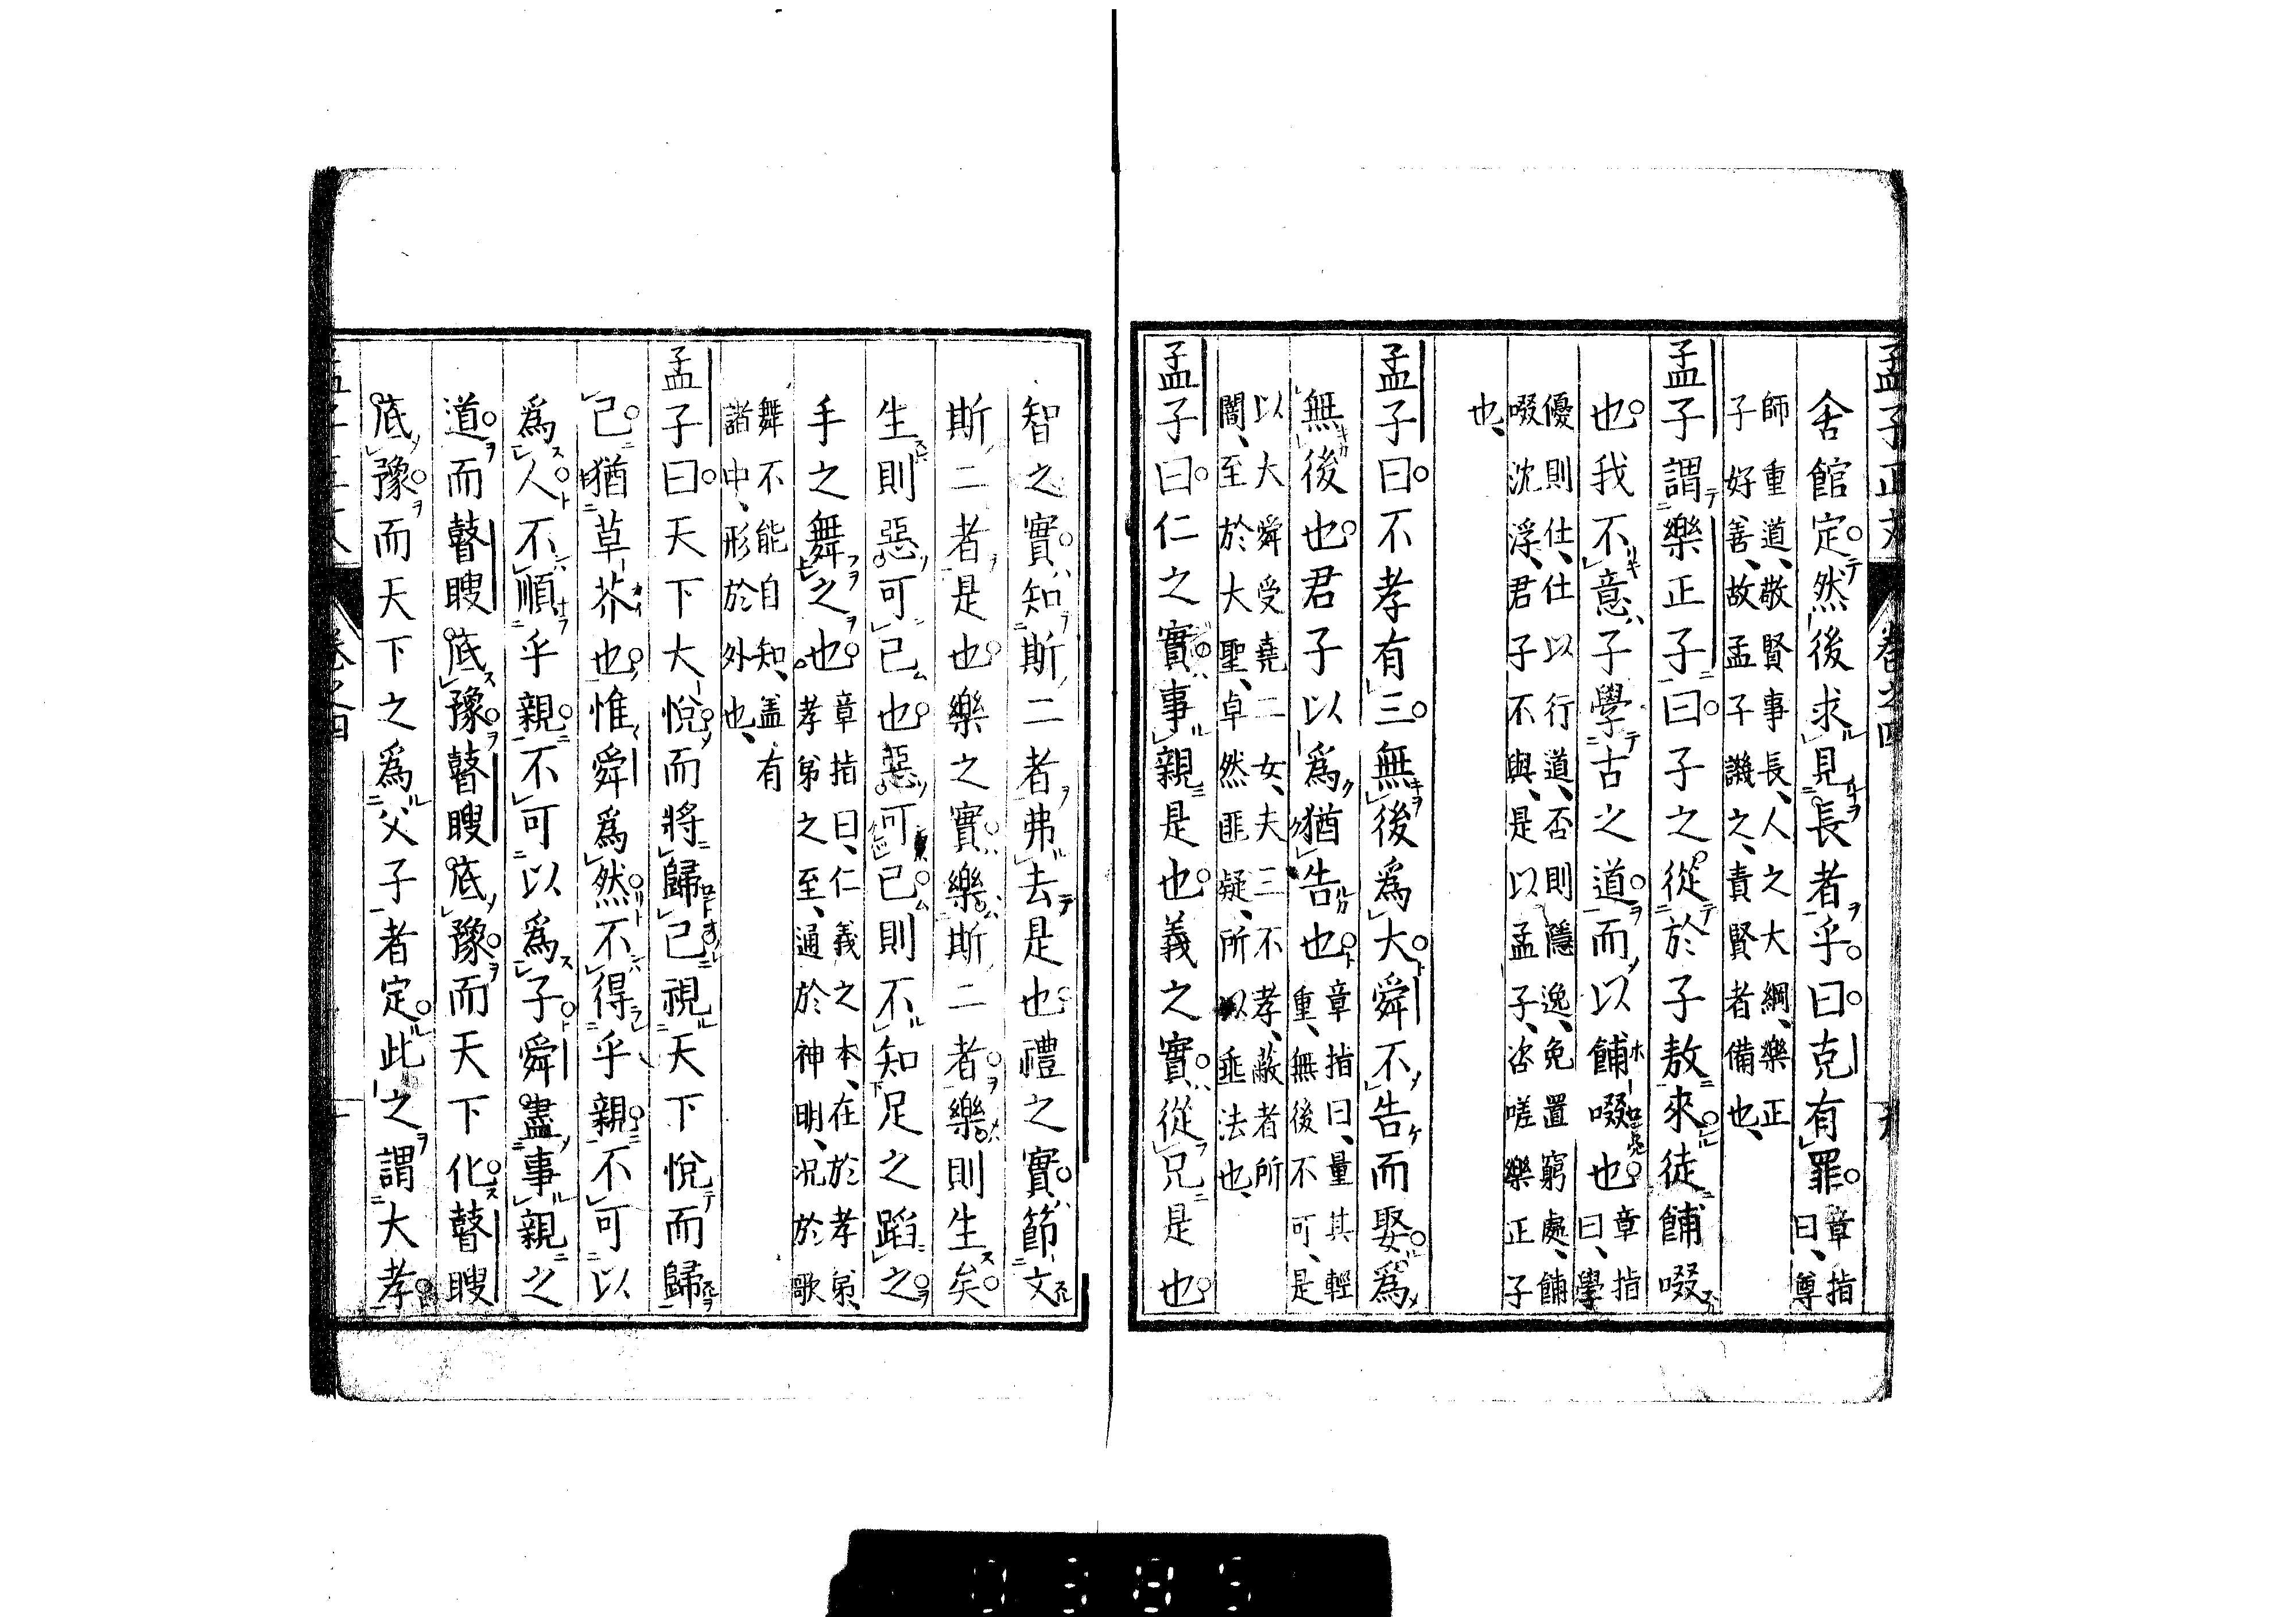 孟子正文 卷之四
舍館定然後求見長者乎曰克有罪章指曰、尊
師重道、敬賢事長、人之大綱、樂正
子好善、故孟子譏之、責賢者備也、
孟子謂樂正子曰子之從於子敖來徒餔啜
也我不意子學古之道而以餔啜也章指曰、學
優則仕、仕以行道、否則隱逸、免置窮處、餔
啜沈浮、君子不與、是以孟子、咨嗟樂正子
也、
孟子曰不孝有三無後爲大舜不告而娶爲
無後也君子以爲猶告也章指曰、量其輕重、無後不可、是
以大舜受堯二女、夫三不孝、蔽者所
闇、至於大聖、卓然匪疑、所以乖法也、
孟子曰仁之實事親是也義之實從兄是也
智之實知斯二者弗去是也禮之實節文
斯二者是也樂之實樂斯二者樂則生矣
生則惡可已也惡可已則不知足之蹈之
手之舞之也章指曰、仁義之本、在於孝弟、孝弟之至、通於神明、況於歌
舞不能自知、盖有
諸中、形於外也、
孟子曰天下大悅而將歸己視天下悅而歸
己猶草芥也惟舜爲然不得乎親不可以
爲人不順乎親不可以爲子舜盡事親之
道而瞽瞍底豫瞽瞍底豫而天下化瞽瞍
底豫而天下之爲父子者定此之謂大孝
0385